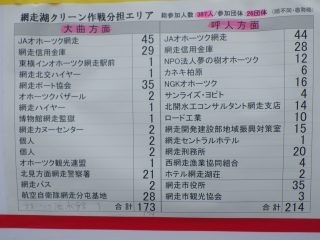 網走湖クリーン作戦分担エリア 総参加人数 387人/参加団体 26団体 (順不同・敬称略)
大曲方面
JAオホーツク網走 45
網走信用金庫 29
東横インオホーツク網走駅前 1
網走北交ハイヤー 1
網走ボート協会 35
オホーツクバザール 2
網走ハイヤー 2
博物館網走監獄 1
網走カヌーセンター 2
個人 2
個人 1
オホーツク観光連盟 1
北見方面網走警察署 21
網走バス 2
航空自衛隊網走分屯基地 28
合計 173
呼人方面
JAオホーツク網走 44
網走信用金庫 28
NPO法人夢の樹オホーツク 12
カネキ柏原 6
NGKオホーツク 16
サンライズ・ヨビト 4
北開水工コンサルタント網走支店 14
ロード工業 10
網走開発建設部地域振興対策室 15
網走セントラルホテル 1
網走刑務所 20
西網走漁業協同組合 4
ホテル網走湖荘 2
網走市役所 35
網走市観光協会 3
合計 214